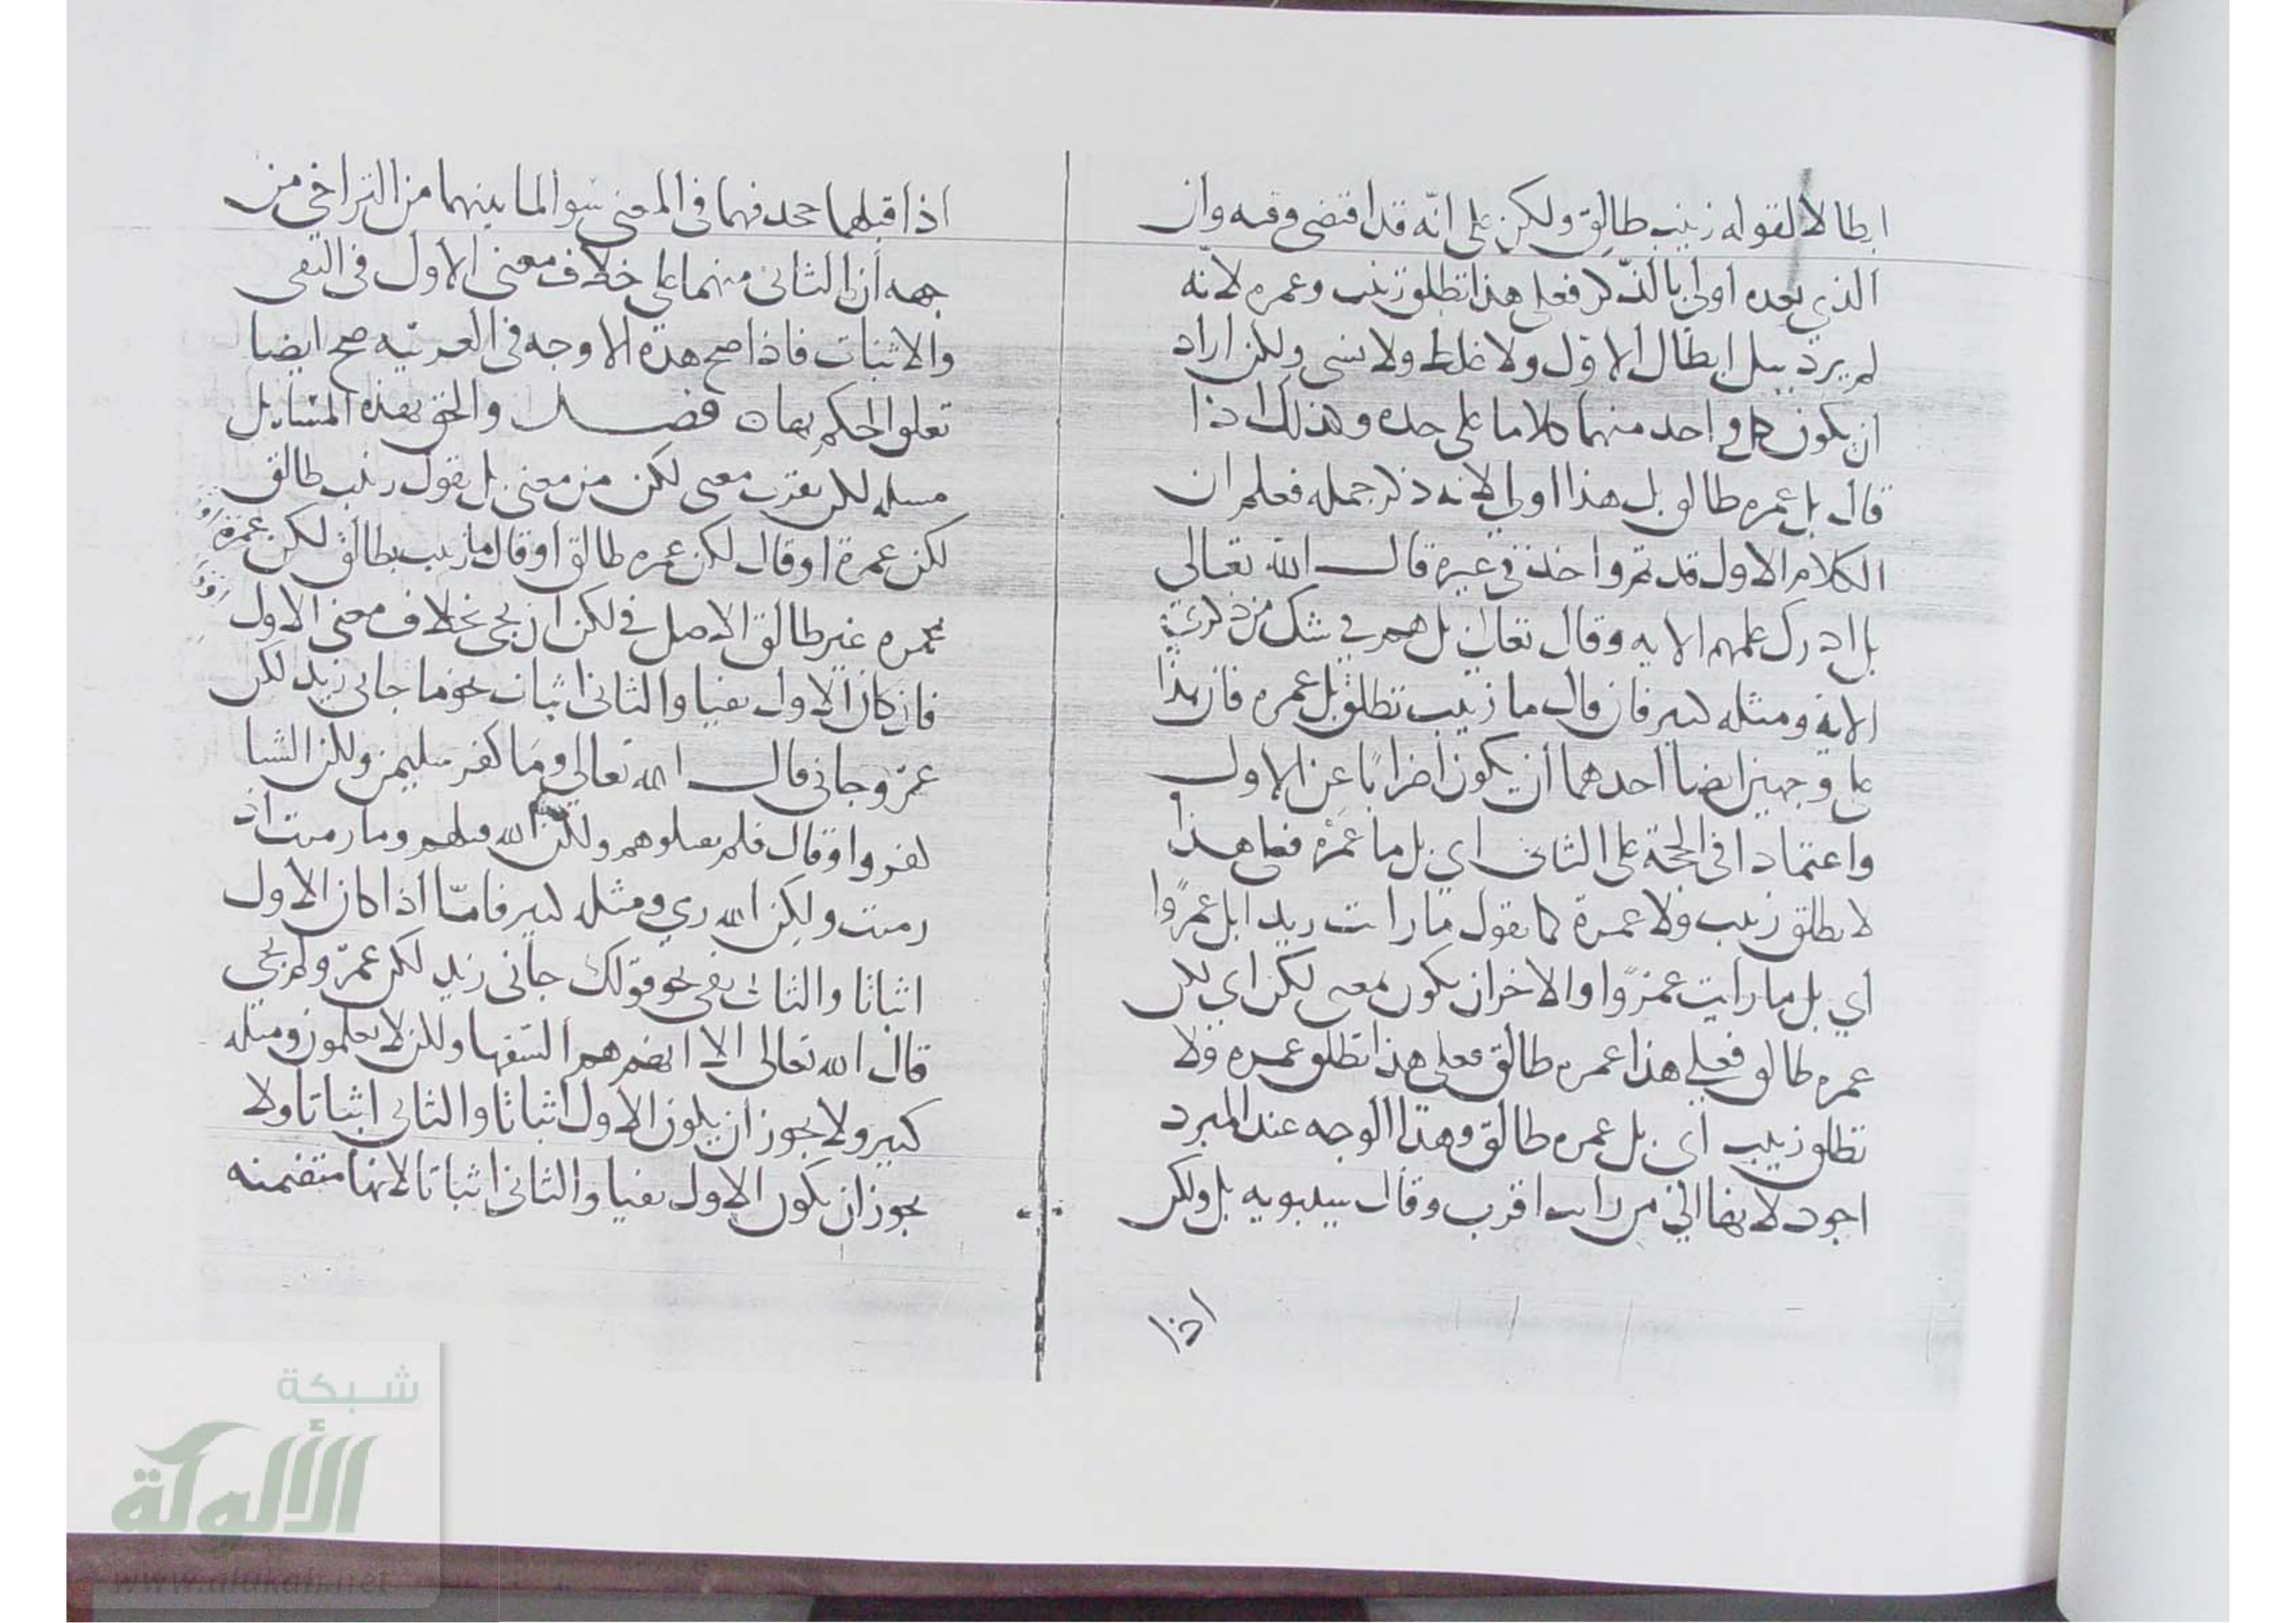 ابطالا لقوله زينب طالق ولكن على انّه قد اقتضى وقته وان
الذي بعده اولى بالذكر فعلى هذا تطلق زينب وعمره لانه
لم يرد ببل ابطال الاول ولا غلط ولا نسى ولكن اراد
ان يكون كل واحد منهما كلاما على حده وهذلك اذا
قال بل عمره طالق بل هذا اولى لانه ذكر جمله فعلم ان
الكلام الاول قد تم واخذ في غيره قال الله تعالى
بل ادرك علمهم الايه وقال تعالى بل هم في شك من ذكري
الاية ومثله كثير فان قال ما زينب تطلق بل عمره فان هذا
على وجهين ايضا احدهما ان يكون اضرابا عن الاول
واعتمادا في الحجة على الثاني اي بل ما عمره فعلى هذا
لا تطلق زينب ولا عمرة كما تقول ما رايت زيدا بل عمرًوا
اي بل ما رايت عمرًوا والاخر ان يكون بمعنى لكن اي لكن
عمره طالق فعلى هذا عمره طالق فعلى هذا تطلق عمره ولا
تطلق زينب اي بل عمره طالق وهذا الوجه عند المبرد
اجود لانها الى من رايت اقرب وقال سيبويه بل ولكن
اذا
اذا قبلهما جحد فهما في المعنى سوا لما بينهما من التراخي من
جهه ان الثاني منهما على خلاف معنى الاول في النفي
والاثبات فاذا صح هذه الاوجه في العربيه صح ايضا
تعلق الحكم بها فصل والحق بهذه المسايل
مسله لكن يقرب معنى لكن من معنى بل يقول زينب طالق
لكن عمرة او قال لكن عمره طالق او قال ما زينب بطالق لكن عمرة
عمره غير طالق الاصل في لكن ان يجى بخلاف معنى الاول
فان كان الاول نفيا والثاني اثبات نحو ما جاني زيد لكن
عمرو جاني قال الله تعالى وما كفر سليمن ولكن الشيا
كفروا وقال فلم تقتلوهم ولكن الله قتلهم وما رميت اذ
رميت ولكن الله رمي ومثله كثير فامّا اذا كان الاول
اثباتا والثاني نفي نحو قولك جاني زيد لكن عمرو لم يجي
قال الله تعالى الا انهم هم السفها ولكن لا يعلمون ومثله
كثير ولا يجوز ان يكون الاول اثباتا والثاني اثباتا ولا
يجوز ان يكون الاول نفيا والثاني اثباتا لانها متضمنه
شبكة
الألوكة
www.alukah.net